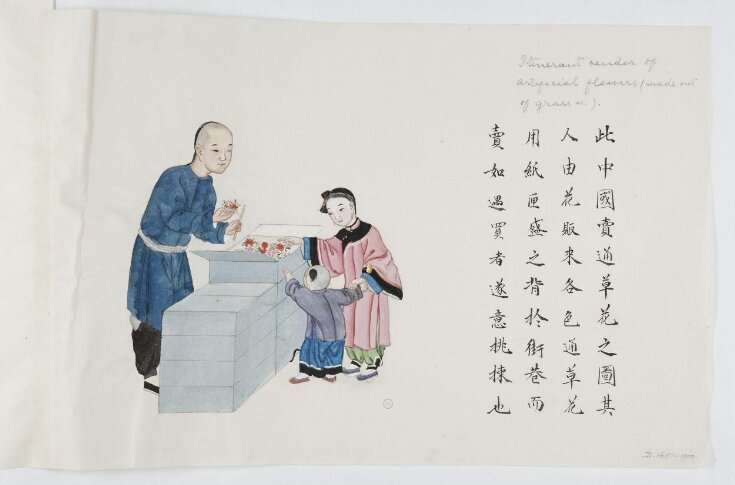 Itinerant vendor of
artificial flowers (made out
of grass &c.).
此中國賣通草花之圖其
人由花販來各色通草花
用紙匣盛之背於街巷而
賣如遇買者遂意挑揀也